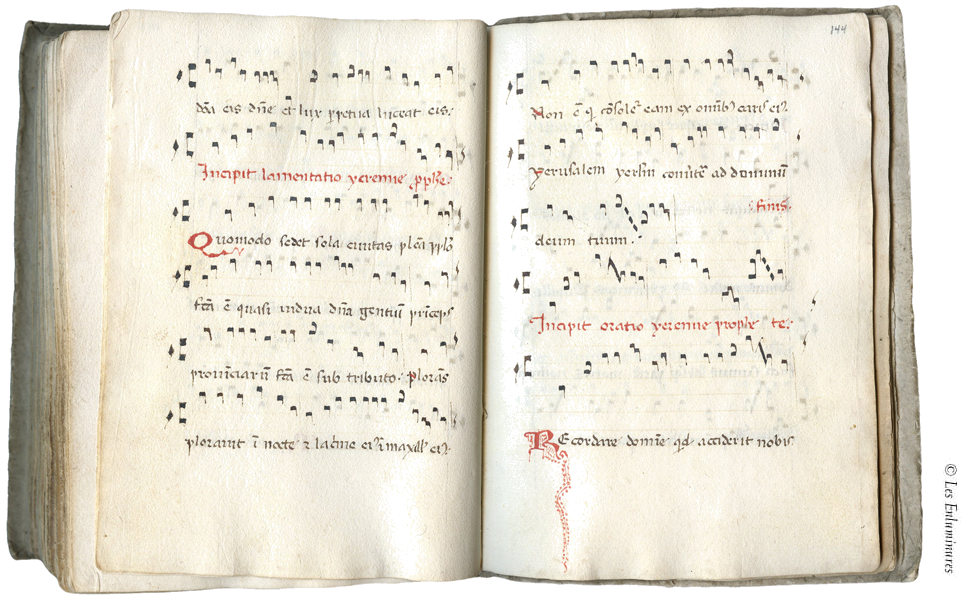 dña eis dñe et lux ꝑpetua luceat eis.
Incipit lamentatio yeremie ꝓphe.
Quomodo sedet sola ciuitas plēa pplo
fcā ē quasi uidua dñā gentiū prīceps
prouīciarū fcā ē sub tributo. Plorās
plorauit ī nocte ⁊ lacrīe eiꝰ ī maxill eiꝰ.
144
Non ē q̄ cōsolet eam ex omībꝰ caris eiꝰ.
Yerusalem yerl̄m conūte ad dominū
finis.
deum tuum.
Incipit oratio yeremie prophe te.
Recordare domīe qd acciderit nobis
© Les Enluminures